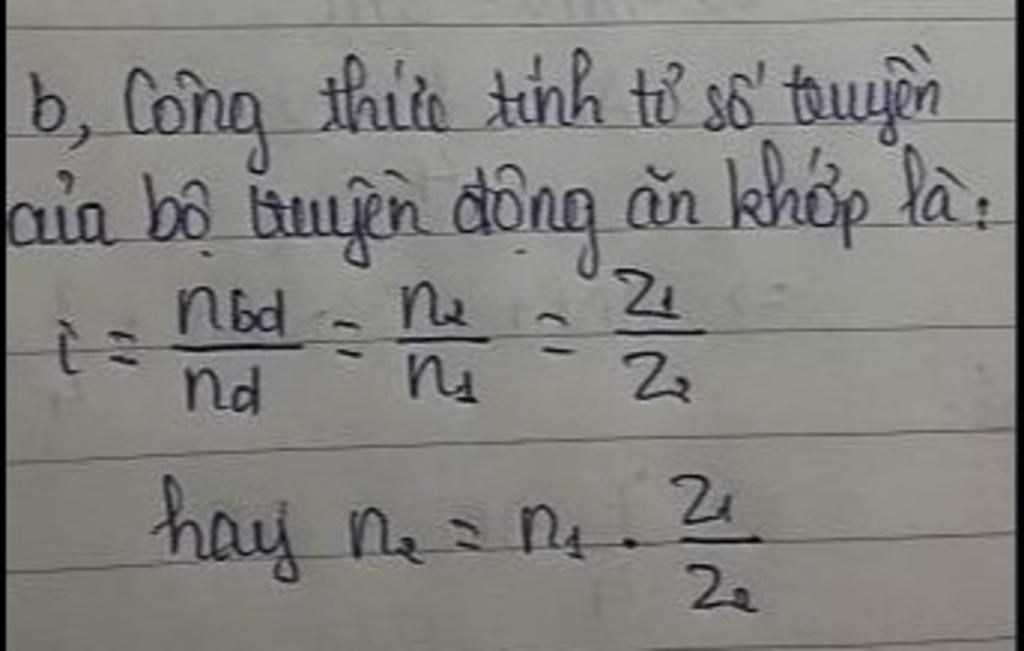 b, Công thức tính tỉ số truyền
của bộ truyền động ăn khớp là:
i = nbd/nd = n2/n1 = Z1/Z2
hay n2 = n1 . Z1/Z2